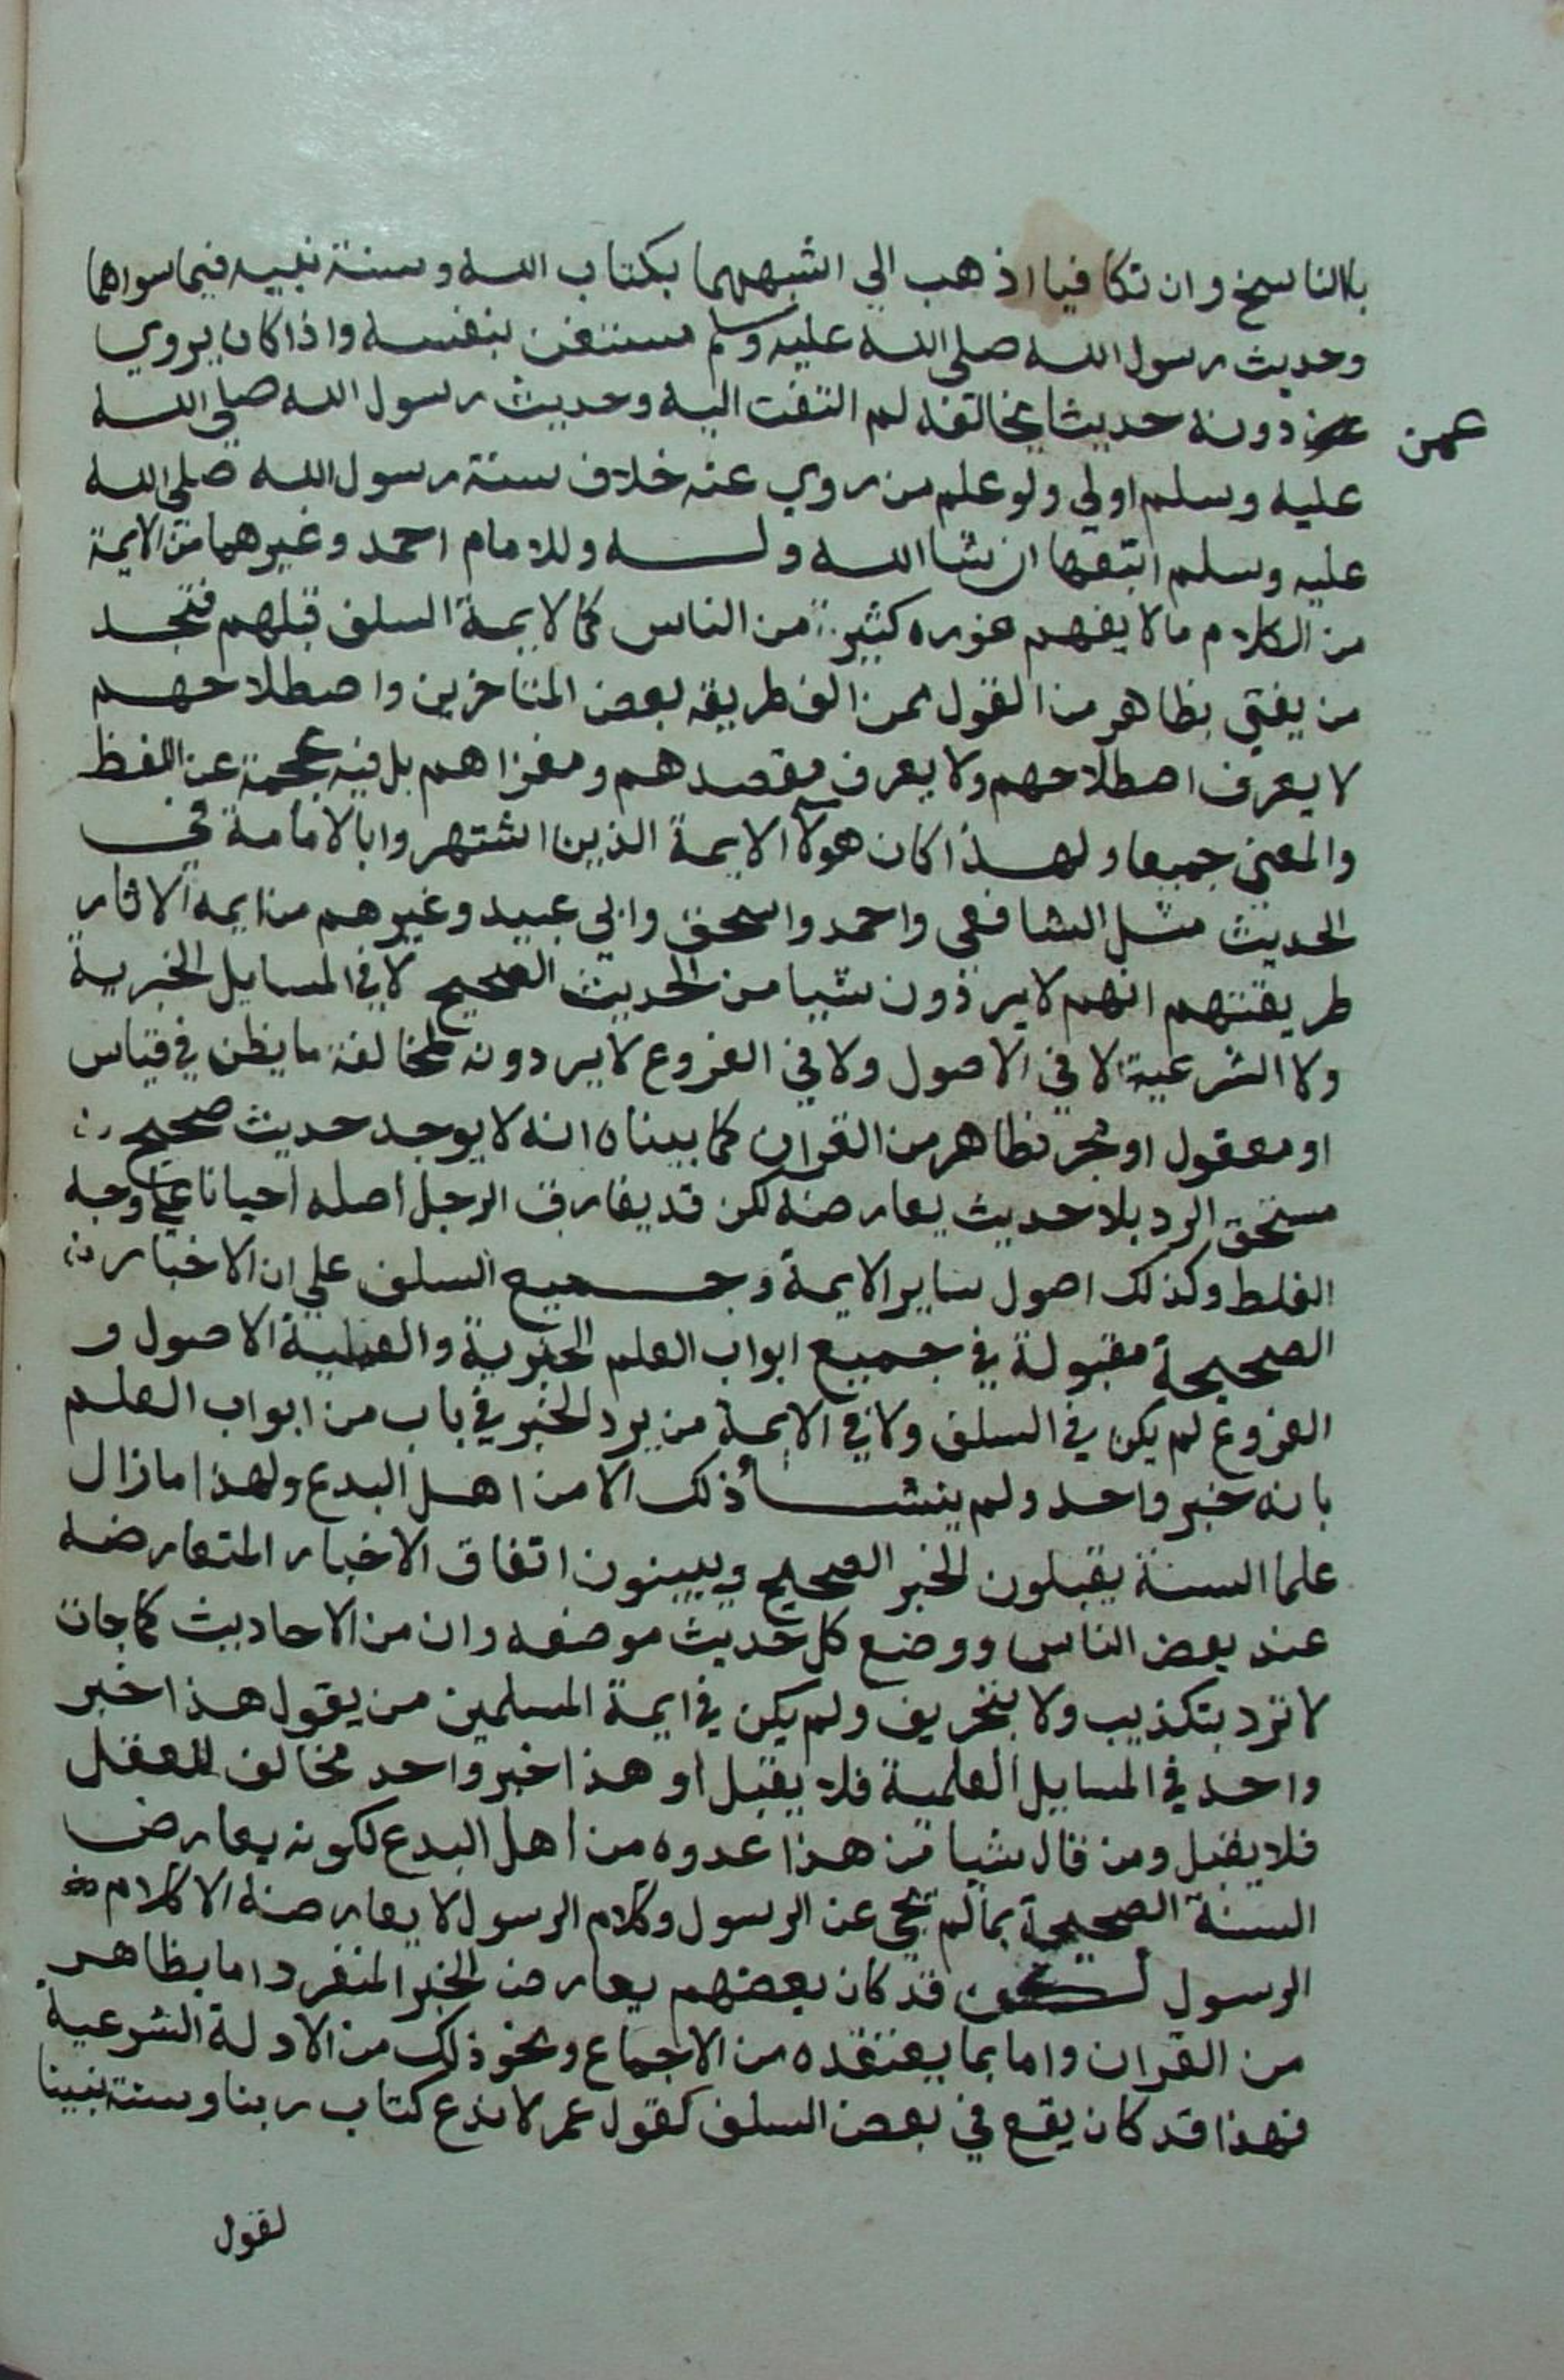 بالناسخ وان تكافيا اذهب الي اشبههما بكتاب الله وسنة نبيه فيما سواهما
وحديث رسول الله صلى الله عليه وسلم مستغن بنفسه واذا كان يروي
عمن دونه حديثا يخالفه لم التفت اليه وحديث رسول الله صلى الله
عليه وسلم اولي ولو علم من روي عنه خلاف سنة رسول الله صلى الله
عليه وسلم اتبعها ان شا الله وله وللامام احمد وغيرهما من الايمة
من الكلام ما لا يفهم غوره كثير من الناس كما لايمة السلف قبلهم فتجد
من يفتي بظاهر من القول ممن الف طريقه بعض المتاخرين واصطلاحهم
لا يعرف اصطلاحهم ولا يعرف مقصدهم ومغزاهم بل فيه عجمة عن اللفظ
والمعنى جميعا ولهذا كان هولا الايمة الذين اشتهروا بالامامة في
الحديث مثل الشافعي واحمد واسحق وابي عبيد وغيرهم من ايمه الاثار
طريقتهم انهم لا يردون شيا من الحديث الصحيح لا في المسايل الخبرية
ولا الشرعية لا في الاصول ولا في الفروع لا يردونه لمخالفة ما يظن في قياس
او معقول او مجرد ظاهر من القران كما بيناه انه لا يوجد حديث صحيح
مستحق الرد بلا حديث يعارضه لكن قد يفارق الرجل اصله احيانا على وجه
الغلط وكذلك اصول ساير الايمة وجميع السلف علي ان الاخبار
الصحيحة مقبولة في جميع ابواب العلم الخبرية والعملية الاصول و
الفروع لم يكن في السلف ولا في الايمة من يرد الخبر في باب من ابواب العلم
بانه خبر واحد ولم ينشأ ذلك الا من اهل البدع ولهذا ما زال
علما السنة يقبلون الخبر الصحيح ويبينون اتفاق الاخبار المتعارضه
عند بعض الناس ووضع كل حديث موضعه وان من الاحاديث كما جات
لا ترد بتكذيب ولا بتحريف ولم يكن في ايمة المسلمين من يقول هذا خبر
واحد في المسايل العلمية فلا يقبل او هذا خبر واحد مخالف للعقل
فلا يقبل ومن قال شيا من هذا عدوه من اهل البدع لكونه يعارض
السنة الصحيحة بما لم يجي عن الرسول وكلام الرسول لا يعارضه الا كلام
الرسول لكن قد كان بعضهم يعارض الخبر المنفرد اما بظاهر
من القران واما بما يعتقده من الاجماع ونحو ذلك من الادلة الشرعية
فهذا قد كان يقع في بعض السلف كقول عمر لا ندع كتاب ربنا وسنة نبينا
لقول